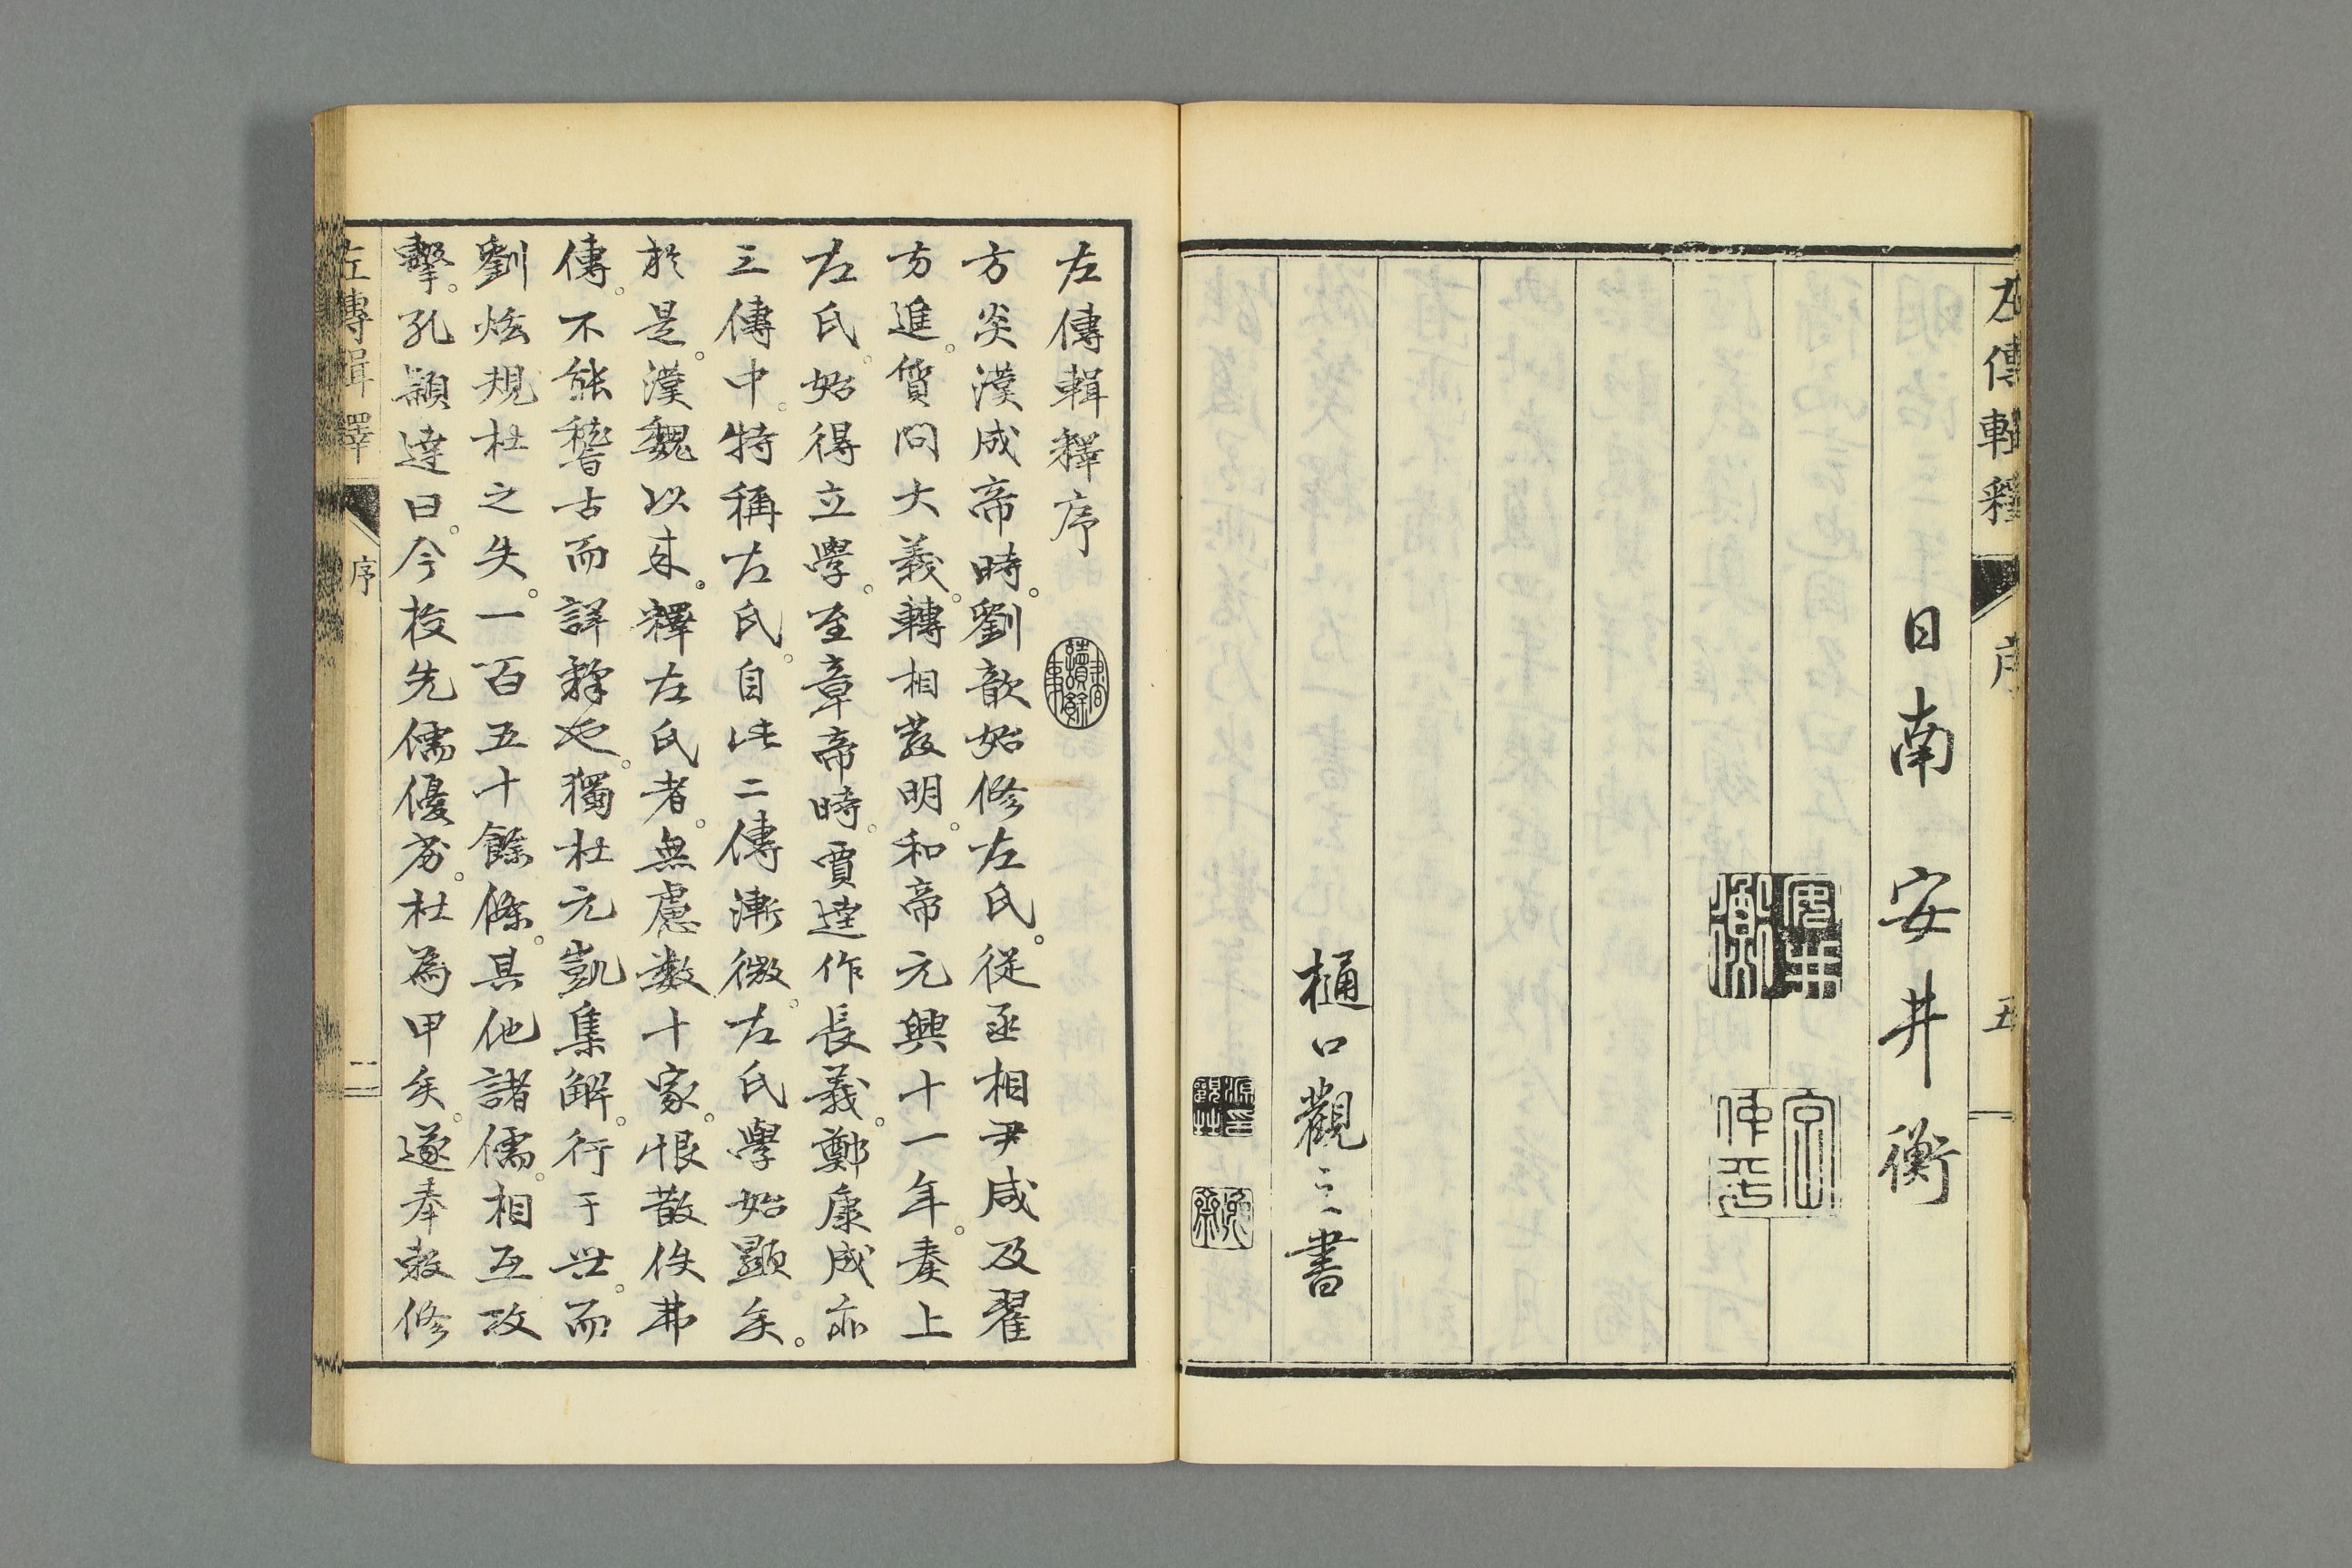 左傳輯釋
序
五
日南安井衡
安井衡
仲平
樋口觀之書
左傳輯釋序
方炎漢成帝時。劉歆始修左氏。從丞相尹咸及翟
方進。質問大義。轉相發明。和帝元興十一年。奏上
左氏。始得立學。至章帝時。賈逵作長義。鄭康成亦
三傳中。特稱左氏。自此二傳漸微。左氏學始顯矣。
於是。漢魏以來。釋左氏者。無慮數十家。恨散佚弗
傳。不能稽古而詳釋也。獨杜元凱集解。行于世。而
劉炫規杜之失。一百五十餘條。其他諸儒。相互攻
擊。孔穎達曰。今校先儒優劣。杜為甲矣。遂奉敕修
左傳輯釋
序
一